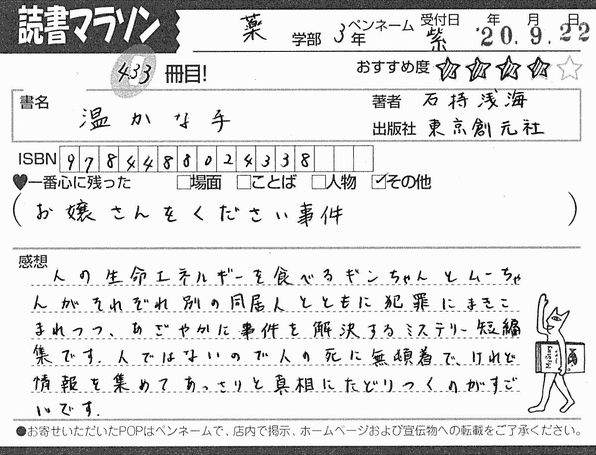 読書マラソン
薬 学部 3年 ペンネーム 紫 受付日 年 月 日 '20.9.22
433 冊目! おすすめ度 ★★★★☆
書名 温かな手 著者 石持浅海
出版社 東京創元社
ISBN 9784488024338
♥一番心に残った □場面 □ことば □人物 ☑その他
(お嬢さんをください事件)
感想
人の生命エネルギーを食べるギンちゃんとムーちゃ
んがそれぞれ別の同居人とともに犯罪にまきこ
まれつつ、あざやかに事件を解決するミステリー短編
集です。人ではないので人の死に無頓着で、けれど
情報を集めてあっさりと真相にたどりつくのがすご
いです.
●お寄せいただいたPOPはペンネームで、店内で掲示、ホームページおよび宣伝物への転載をご了承ください。